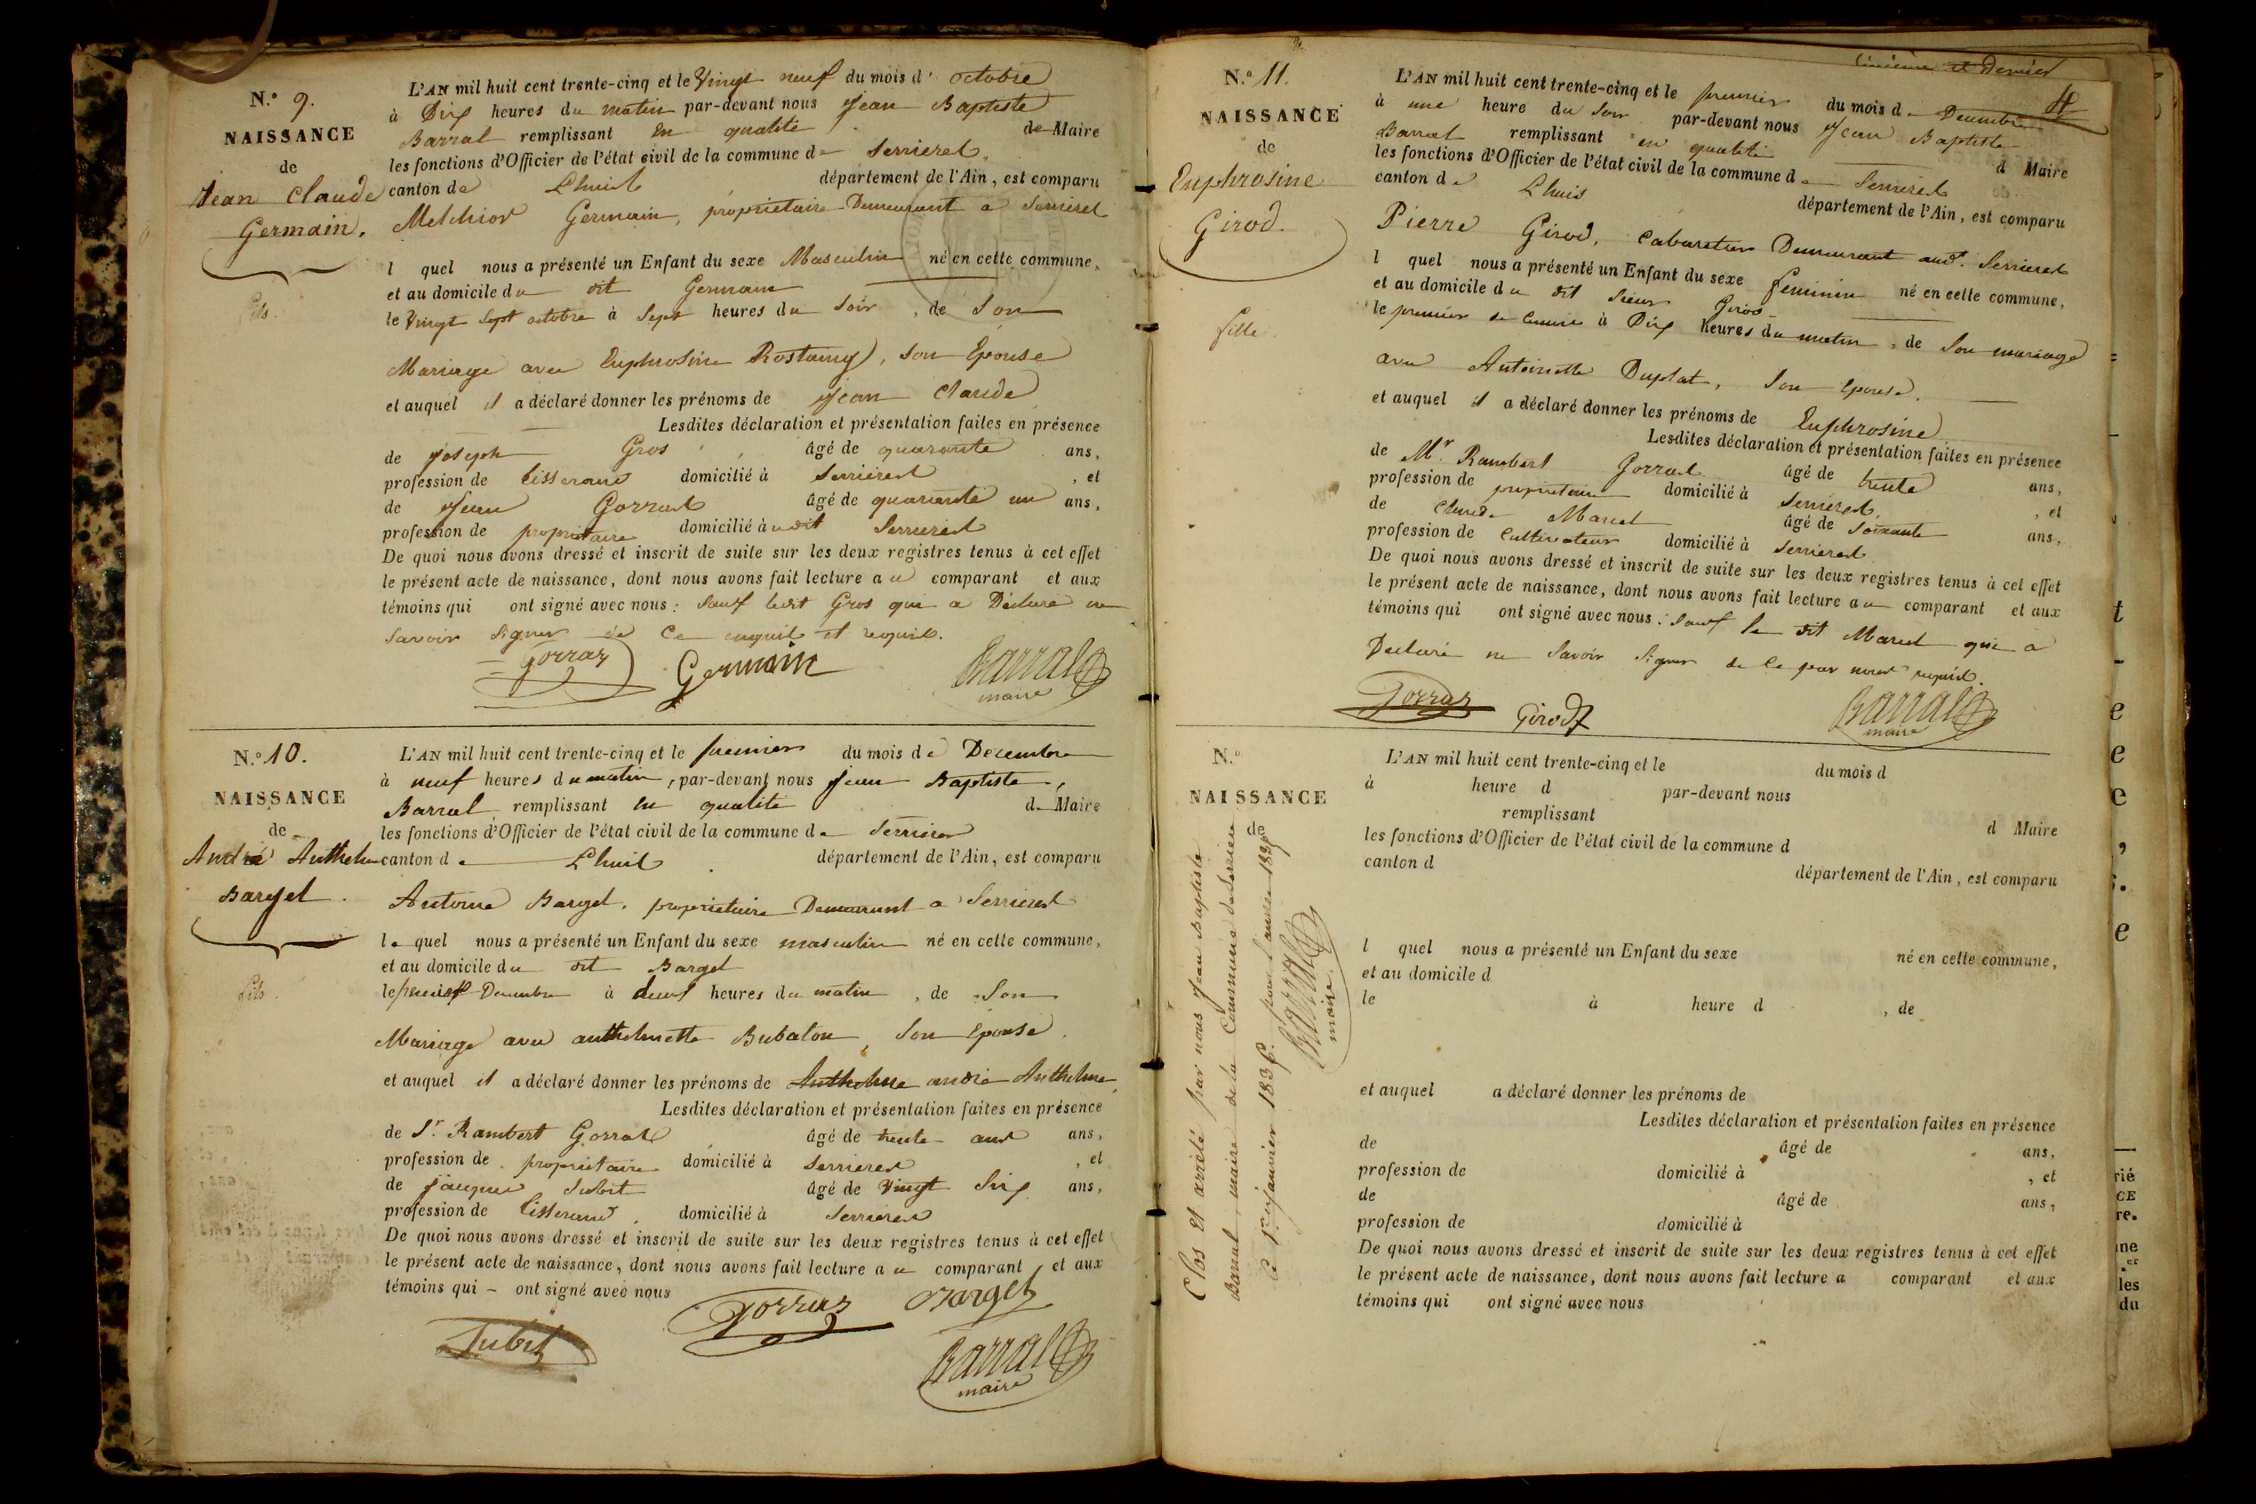 N.° 9.
NAISSANCE
de
Jean Claude
Germain.
fils.
L'AN mil huit cent trente-cinq et le Vingt neuf du mois d'octobre
à Dix heures du matin par-devant nous Jean Baptiste
Barral remplissant en qualité de Maire
les fonctions d'Officier de l'état civil de la commune de Serrieres
canton de Lhuis département de l'Ain, est comparu
Melchior Germain, propriétaire Demeurant a Serrieres
l quel nous a présenté un Enfant du sexe Masculin né en cette commune,
et au domicile du dit Germain
le Vingt Sept octobre à Sept heures du Soir, de Son
Mariage avec Euphrosine Rostaing, Son Epouse
et auquel il a déclaré donner les prénoms de Jean Claude
Lesdites déclaration et présentation faites en présence
de Joseph Gros âgé de quarante ans,
profession de tisserand domicilié à Serrieres, et
de Jean Gorraz âgé de quarante un ans,
profession de propriétaire domicilié à udit Serrieres
De quoi nous avons dressé et inscrit de suite sur les deux registres tenus à cet effet
le présent acte de naissance, dont nous avons fait lecture au comparant et aux
témoins qui ont signé avec nous : Sauf ledit Gros qui a Déclaré ne
Savoir Signer de ce enquis et requis.
Gorraz Germain Barral
maire
N.° 10.
NAISSANCE
de
André Anthelme
Barget.
fils.
L'AN mil huit cent trente-cinq et le premier du mois de Decembre
à neuf heures du matin, par-devant nous Jean Baptiste
Barral remplissant en qualité de Maire
les fonctions d'Officier de l'état civil de la commune de Serrieres
canton de Lhuis département de l'Ain, est comparu
Antoine Barget, propriétaire Demeurant a Serrieres
le quel nous a présenté un Enfant du sexe masculin né en cette commune,
et au domicile du dit Barget
le premier Decembre à deux heures du matin, de Son
Mariage avec anthelmette Bubaton, Son Epouse
et auquel il a déclaré donner les prénoms de Anthelme andré Anthelme
Lesdites déclaration et présentation faites en présence
de Sr. Rambert Gorraz âgé de trente ans,
profession de propriétaire domicilié à Serrieres, et
de Jacques Subit âgé de Vingt Six ans,
profession de tisserand, domicilié à Serrieres
De quoi nous avons dressé et inscrit de suite sur les deux registres tenus à cet effet
le présent acte de naissance, dont nous avons fait lecture au comparant et aux
témoins qui ont signé avec nous
Gorraz Barget
Subit
Barral
maire
et Dernier
N.° 11.
NAISSANCE
de
Euphrosine
Girod.
fille.
L'AN mil huit cent trente-cinq et le premier du mois de Decembre
à une heure du Soir par-devant nous Jean Baptiste
Barral remplissant en qualité d Maire
les fonctions d'Officier de l'état civil de la commune de Serrieres
canton de Lhuis département de l'Ain, est comparu
Pierre Girod, Cabaretier Demeurant aud. Serrieres
l quel nous a présenté un Enfant du sexe feminin né en cette commune,
et au domicile du dit Sieur Girod
le premier decembre à Dix heures du matin, de Son mariage
avec Antoinette Duplat, Son epouse.
et auquel il a déclaré donner les prénoms de Euphrosine
Lesdites déclaration et présentation faites en présence
de Mr. Rambert Gorraz âgé de trente ans,
profession de propriétaire domicilié à Serrieres, et
de Claude Marcel âgé de soixante ans,
profession de Cultivateur domicilié à Serrieres
De quoi nous avons dressé et inscrit de suite sur les deux registres tenus à cet effet
le présent acte de naissance, dont nous avons fait lecture au comparant et aux
témoins qui ont signé avec nous : Sauf le dit Marcel qui a
Declaré ne Savoir Signer de ce par nous requis.
Gorraz Girod Barral
maire
N.°
NAISSANCE
de
L'AN mil huit cent trente-cinq et le du mois d
à heure d par-devant nous
remplissant d Maire
les fonctions d'Officier de l'état civil de la commune d
canton d département de l'Ain, est comparu
l quel nous a présenté un Enfant du sexe né en cette commune,
et au domicile d
le à heure d , de
et auquel a déclaré donner les prénoms de
Lesdites déclaration et présentation faites en présence
de âgé de ans,
profession de domicilié à , et
de âgé de ans,
profession de domicilié à
De quoi nous avons dressé et inscrit de suite sur les deux registres tenus à cet effet
le présent acte de naissance, dont nous avons fait lecture a comparant et aux
témoins qui ont signé avec nous
Clos et arrêté par nous Jean Baptiste
Barral, maire de la Commune de Serrieres
le 1er janvier 1836. pour l'année 1835
Barral
maire